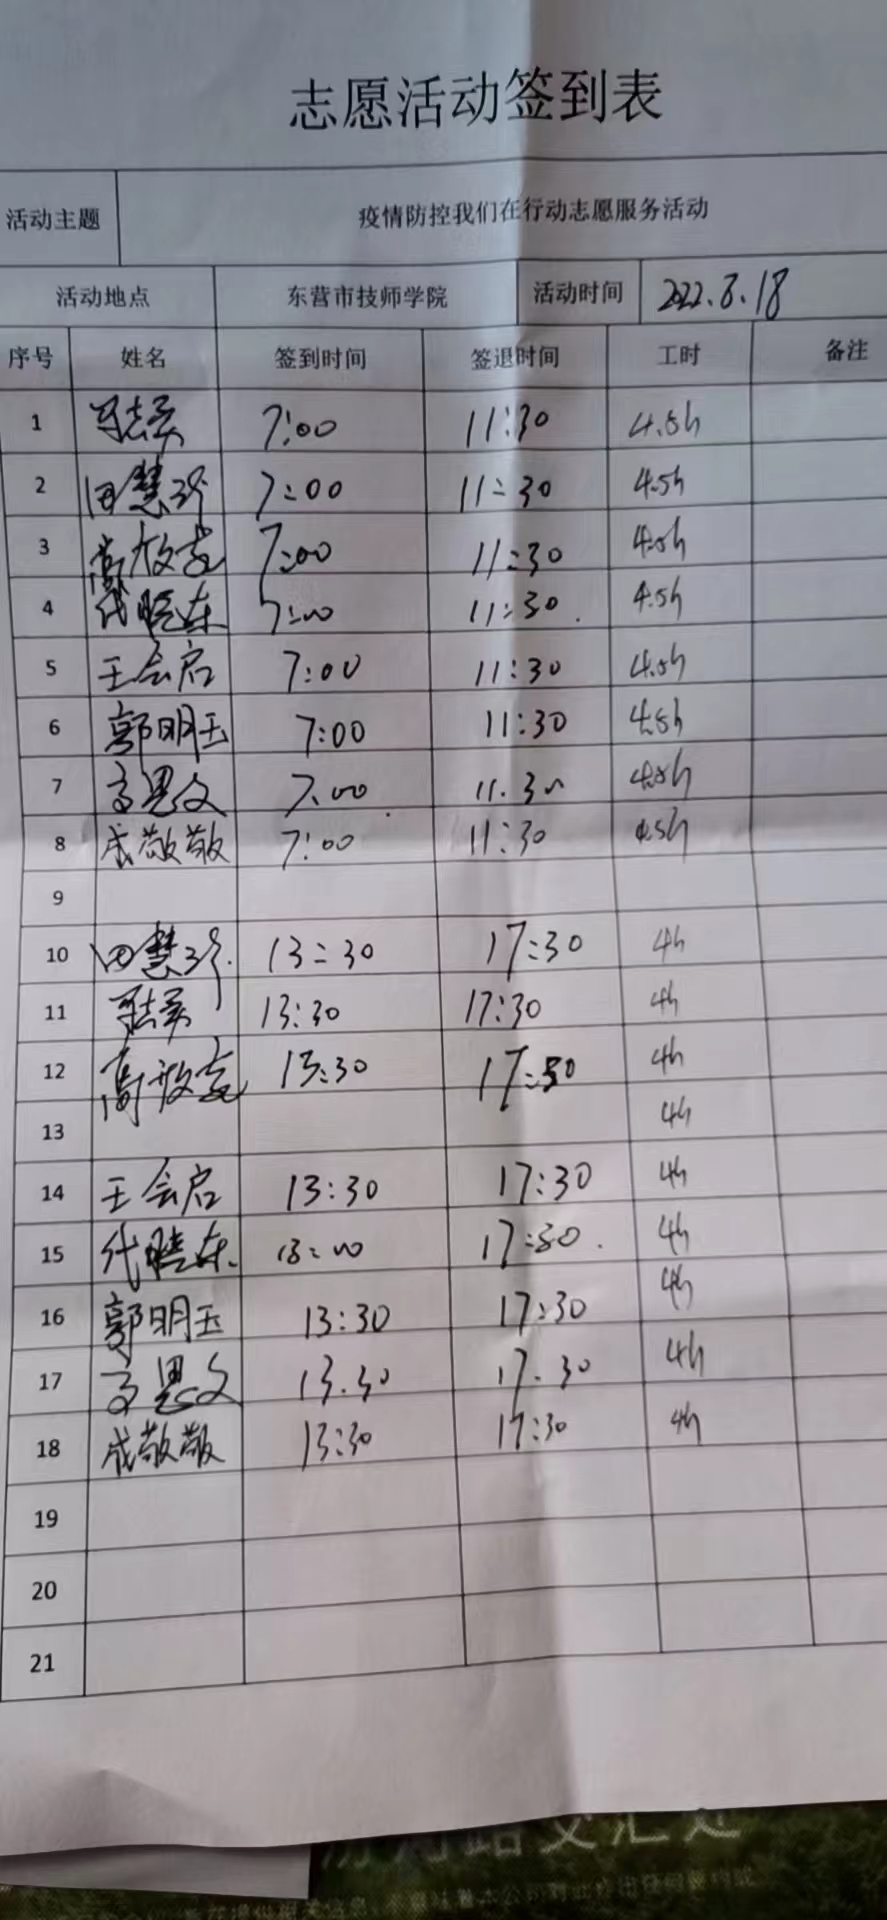 志愿活动签到表
活动主题 疫情防控我们在行动志愿服务活动
活动地点 东营市技师学院 活动时间 2022.8.18
序号 姓名 签到时间 签退时间 工时 备注
1 7:00 11:30 4.5h
2 田慧 7:00 11:30 4.5h
3 高 7:00 11:30 4.5h
4 代晓东 7:00 11:30. 4.5h
5 王会启 7:00 11:30 4.5h
6 郭明玉 7:00 11:30 4.5h
7 高恩文 7.00 11.30 4.5h
8 成敬敬 7:00 11:30 4.5h
9
10 田慧 13:30 17:30 4h
11 13:30 17:30 4h
12 高 13:30 17:30 4h
13 4h
14 王会启 13:30 17:30 4h
15 代晓东. 13:00 17:30. 4h
16 郭明玉 13:30 17:30 4h
17 高恩文 13.30 17.30 4h
18 成敬敬 13:30 17:30 4h
19
20
21